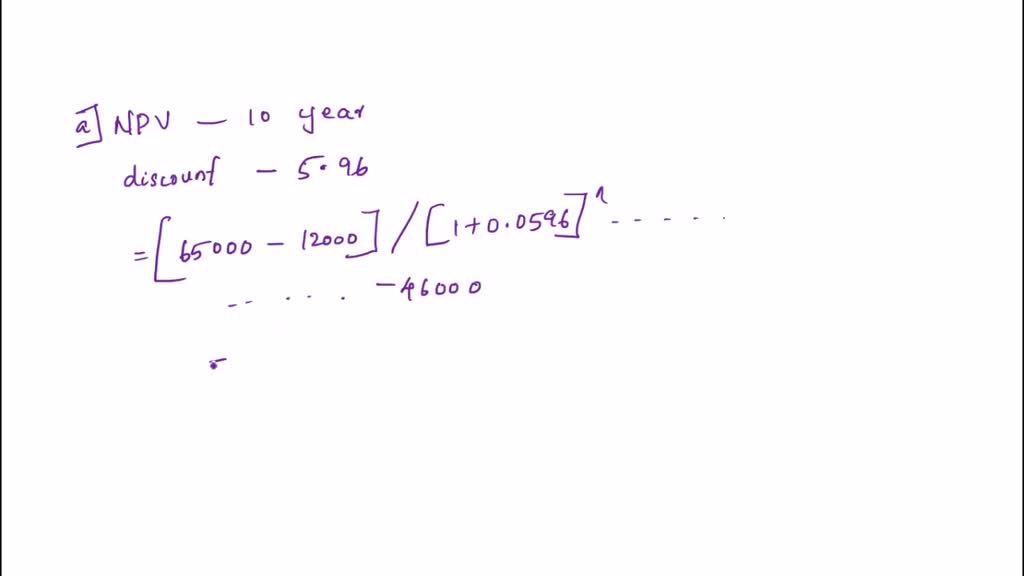 a] NPV — 10 year
discount — 5.96
= [65000 - 12000] / [1+0.0596]^1 - - - - - .
-- . . . . -46000